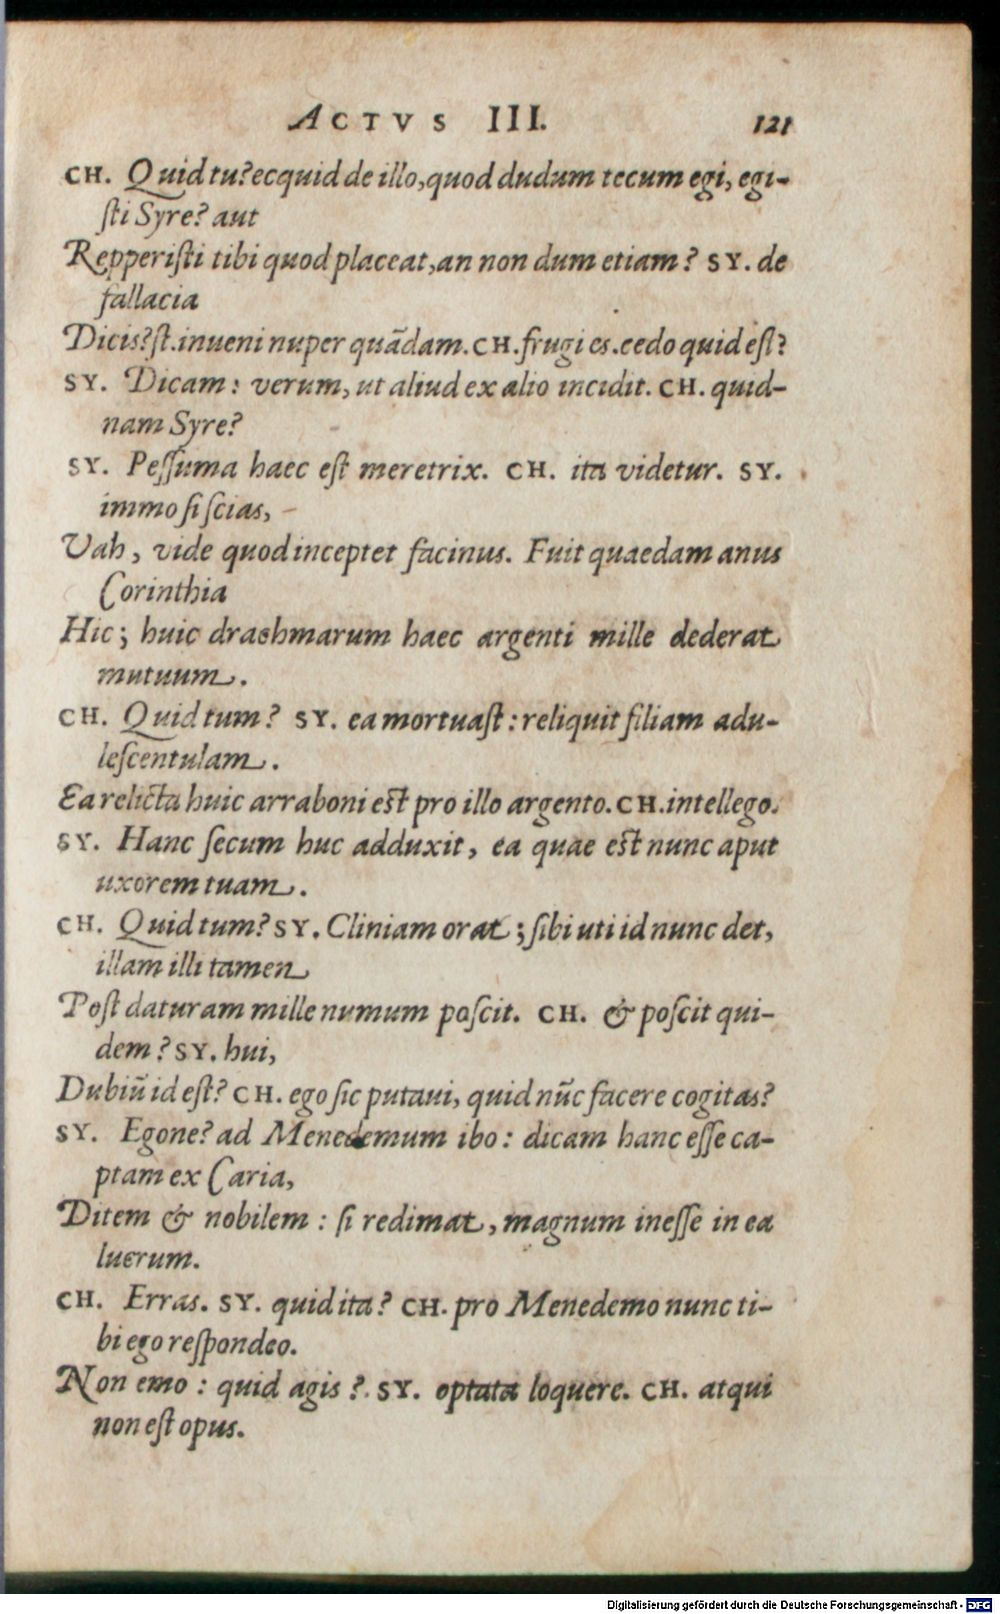 ACTVS III. 121
CH. Quid tu? ecquid de illo, quod dudum tecum egi, egi-
sti Syre? aut
Repperisti tibi quod placeat, an non dum etiam? SY. de
fallacia
Dicis? st. inueni nuper quādam. CH. frugi es. cedo quid est?
SY. Dicam: verum, ut aliud ex alio incidit. CH. quid-
nam Syre?
SY. Pessuma haec est meretrix. CH. ita videtur. SY.
immo si scias,
Vah, vide quod inceptet facinus. Fuit quaedam anus
Corinthia
Hic; huic drachmarum haec argenti mille dederat
mutuum.
CH. Quid tum? SY. ea mortuast: reliquit filiam adu-
lescentulam.
Ea relicta huic arraboni est pro illo argento. CH. intellego.
SY. Hanc secum huc adduxit, ea quae est nunc aput
uxorem tuam.
CH. Quid tum? SY. Cliniam orat; sibi uti id nunc det,
illam illi tamen
Post daturam mille numum poscit. CH. & poscit qui-
dem? SY. hui,
Dubiū id est? CH. ego sic putaui, quid nūc facere cogitas?
SY. Egone? ad Menedemum ibo: dicam hanc esse ca-
ptam ex Caria,
Ditem & nobilem: si redimat, magnum inesse in ea
lucrum.
CH. Erras. SY. quid ita? CH. pro Menedemo nunc ti-
bi ego respondeo.
Non emo: quid agis? SY. optata loquere. CH. atqui
non est opus.
Digitalisierung gefördert durch die Deutsche Forschungsgemeinschaft - DFG